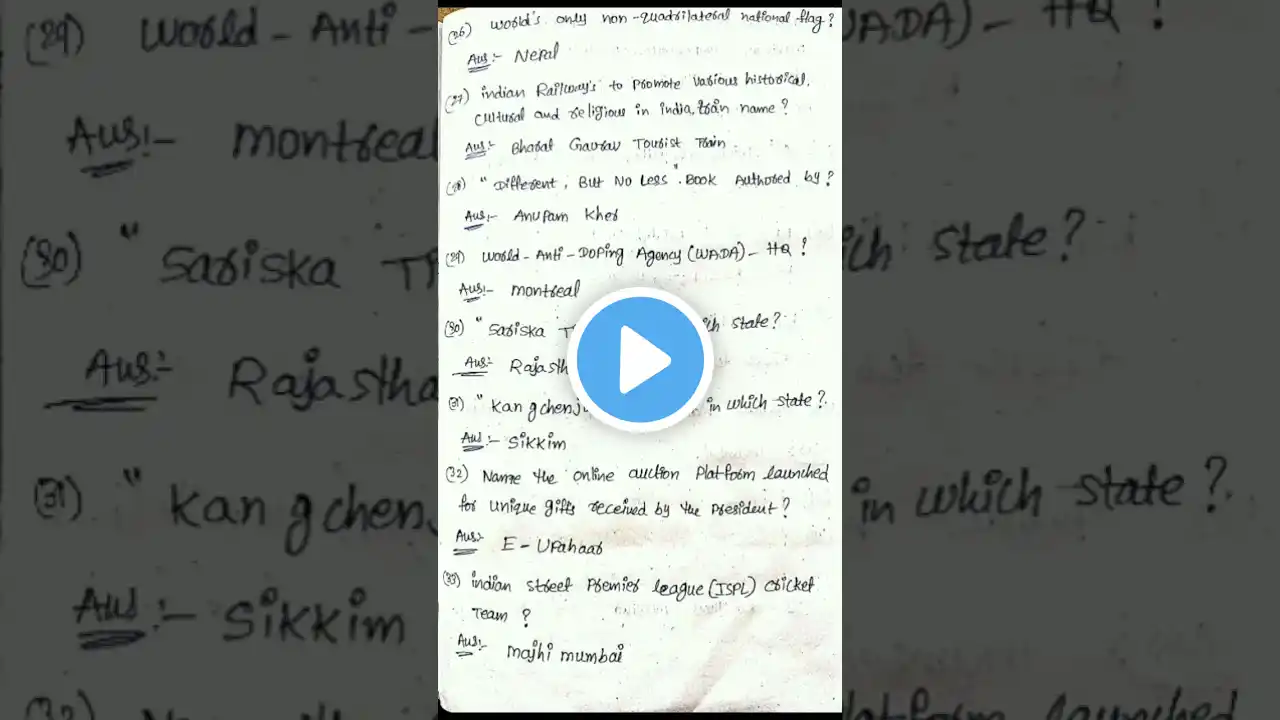 (26) World's only non-quadrilateral national flag?
Aus:- Nepal
(27) indian Railway's to promote various historical,
cultural and religious in india, train name?
Aus:- Bharat Gaurav Tourist Train
(28) "Different, But No Less". Book Authored by?
Aus:- Anupam Kher
(29) World-Anti-Doping Agency (WADA)- HQ ?
Aus:- montreal
(30) "Sariska T ich state?
Aus:- Rajastha
(31) "Kangchenj in which state?
Aus:- Sikkim
(32) Name the online auction Platform launched
for unique gifts received by the president?
Aus:- E-Upahaar
(33) indian street Premier league (ISPL) cricket
Team ?
Aus:- majhi mumbai